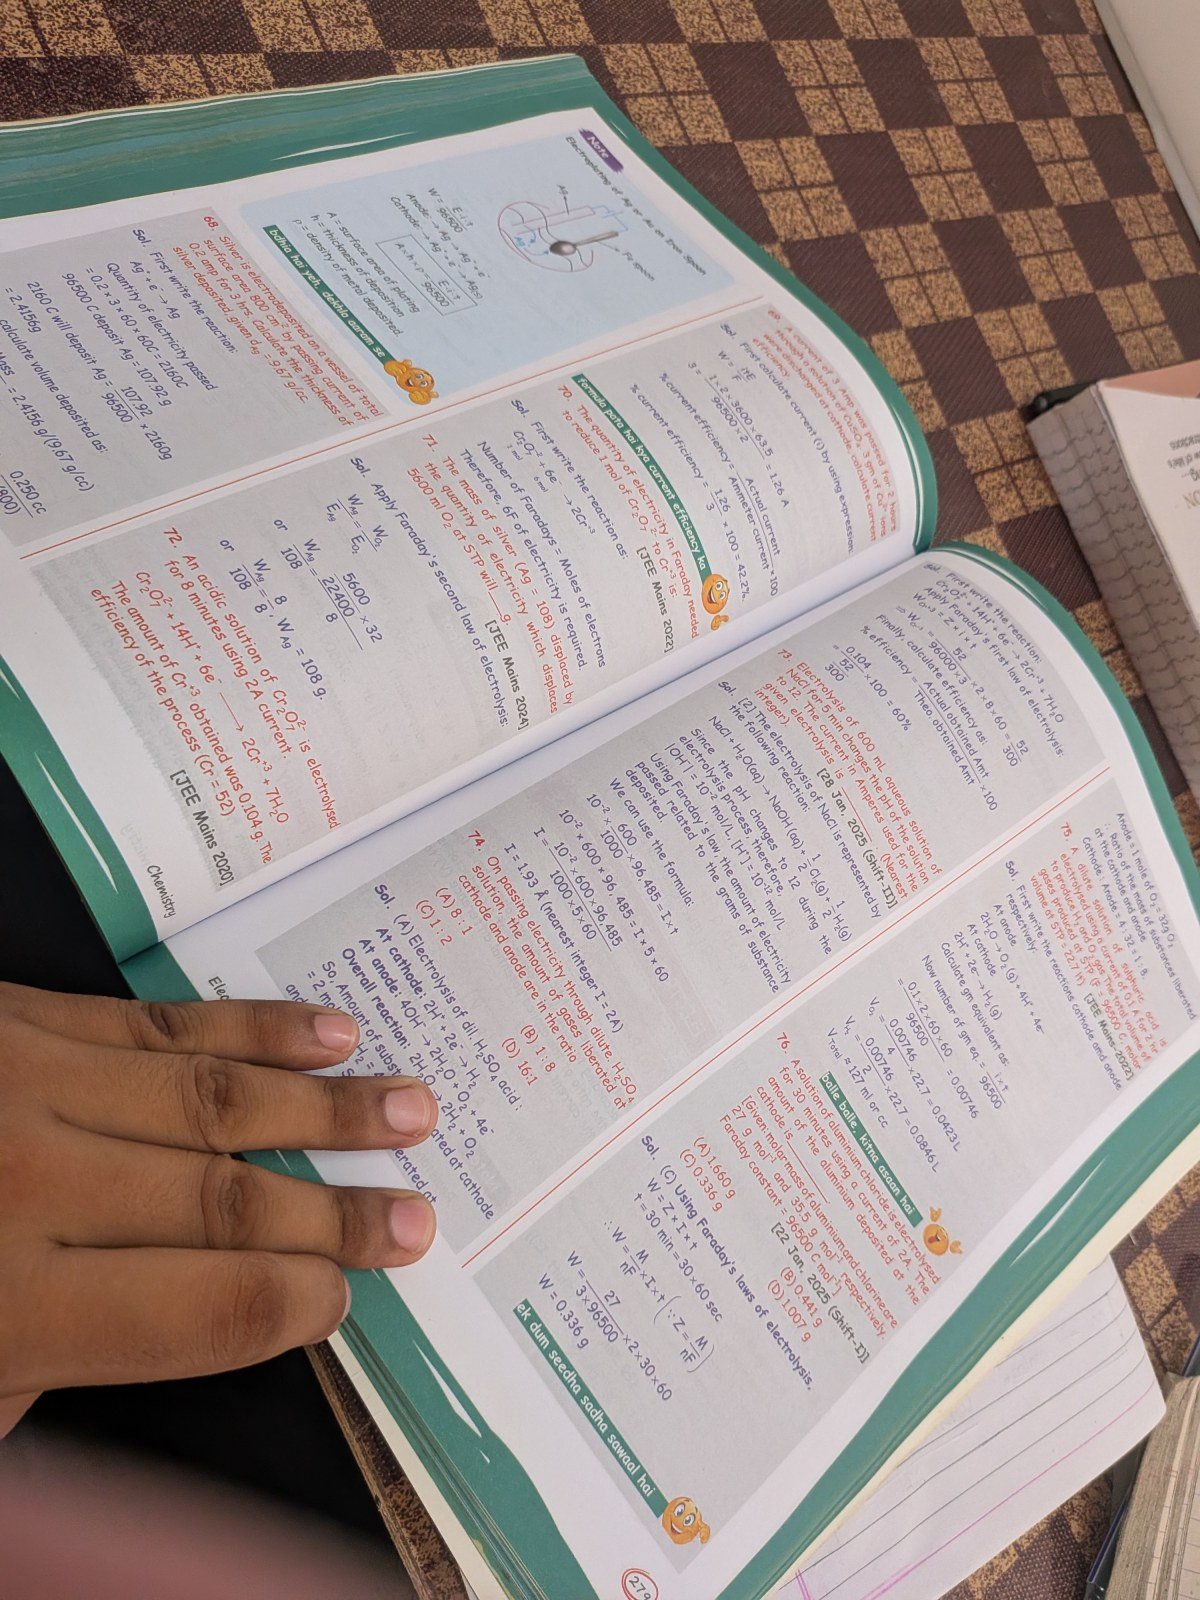 Note
Electroplating of Ag or Au on Iron Spoon
Ag
Fe spoon
W = E.i.t / 96500
Anode: → Ag → Ag⁺ + e⁻
Cathode: → Ag⁺ + e⁻ → Ag(s)
A × h × ρ = E.i.t / 96500
A = surface area of plating
h = thickness of deposition
ρ = density of metal deposited.
bdhia hai yeh, dekhlo aaram se
68. Silver is electrodeposited on a vessel of total
surface area 800 cm² by passing current of
0.2 amp for 3 hrs. Calculate the thickness of
silver deposited, given d_Ag = 9.67 g/cc
Sol. First write the reaction:
Ag⁺ + e⁻ → Ag
Quantity of electricity passed
= 0.2 × 3 × 60 × 60C = 2160C
96500 C deposit Ag = 107.92 g
2160 C will deposit Ag = 107.92 / 96500 × 2160g
= 2.4156g
calculate volume deposited as:
Mass = 2.4156 g/(9.67 g/cc)
0.250 cc
69. A current of 3 Amp was passed for 2 hours
through a solution of CuSO₄, 3 gm of Cu²⁺ ions
were discharged at cathode. Calculate current
efficiency.
Sol. First calculate current (i) by using expression:
W = itE / F
3 = i × 2 × 3600 × 63.5 / 96500 × 2 = 1.26 A
% current efficiency = Actual current / Ammeter current × 100
% current efficiency = 1.26 / 3 × 100 = 42.2%.
formula pata hai kya current efficiency ka
70. The quantity of electricity in Faraday needed
to reduce 1 mol of Cr₂O₇²⁻ to Cr⁺³ is:
[JEE Mains 2022]
Sol. First write the reaction as:
Cr₂O₇²⁻ + 6e⁻ → 2Cr⁺³
1 mol 6 mol
Number of Faradays = Moles of electrons
Therefore, 6F of electricity is required.
71. The mass of silver (Ag = 108) displaced by
the quantity of electricity which displaces
5600 ml O₂ at STP will____g.
[JEE Mains 2024]
Sol. Apply Faraday's second law of electrolysis:
W_Ag / E_Ag = W_O₂ / E_O₂
or W_Ag / 108 = 5600 × 32 / 22400 / 8
or W_Ag / 108 = 8 / 8, W_Ag = 108 g.
72. An acidic solution of Cr₂O₇²⁻ is electrolysed
for 8 minutes using 2A current.
Cr₂O₇²⁻ + 14H⁺ + 6e⁻ → 2Cr⁺³ + 7H₂O
The amount of Cr⁺³ obtained was 0.104 g. The
efficiency of the process (Cr = 52)
[JEE Mains 2020]
Chemistry
Sol. First write the reaction:
Cr₂O₇²⁻ + 14H⁺ + 6e⁻ → 2Cr⁺³ + 7H₂O
Apply Faraday's first law of electrolysis:
W_Cr⁺³ = Z × i × t
⇒ W = 52 / 96000 × 3 × 2 × 8 × 60 = 52 / 300
Finally, calculate efficiency as:
% efficiency = Actual obtained Amt / Theo. obtained Amt × 100
= 0.104 / 52 / 300 × 100 = 60%
73. Electrolysis of 600 mL aqueous solution of
NaCl for 5 min changes the pH of the solution
to 12. The current in Amperes used for the
given electrolysis is ____. (Nearest
integer). [28 Jan, 2025 (Shift-II)]
Sol. (2) The electrolysis of NaCl is represented by
the following reaction:
NaCl + H₂O(aq) → NaOH (aq) + 1/2 Cl₂(g) + 1/2 H₂(g)
Since the pH changes to 12 during the
electrolysis process, therefore,
[OH⁻] = 10⁻² mol/L, [H⁺] = 10⁻¹² mol/L
Using Faraday's law the amount of electricity
passed related to the grams of substance
deposited.
We can use the formula:
10⁻² × 600 / 1000 × 96,485 = I × t
10⁻² × 600 × 96,485 = I × 5 × 60
I = 10⁻² × 600 × 96,485 / 1000 × 5 × 60
I = 1.93 Å (nearest integer I = 2A)
74. On passing electricity through dilute. H₂SO₄
solution, the amount of gases liberated at
cathode and anode are in the ratio
(A) 8 : 1 (B) 1 : 8
(C) 1 : 2 (D) 16:1
Sol. (A) Electrolysis of dil. H₂SO₄ acid:
At cathode: 2H⁺ + 2e⁻ → H₂
At anode: 4OH⁻ → 2H₂O + O₂ + 4e⁻
Overall reaction: 2H₂O → 2H₂ + O₂
So, Amount of subst ated at cathode
= 2 mo H₂ = 4
and erated at
Anode = 1 mole of O₂ = 32g O₂
∴ Ratio of the mass of substances liberated
at the cathode and anode.
Cathode : Anode = 4 : 32 = 1 : 8.
75. A dilute solution of sulphuric acid is
electrolysed using a current of 0.1 A for 2 hr
to produce H₂ and O₂ gas. The total volume of
gases produced at STP (F = 96500 C, molar
volume at STP = 22.7 lit) [JEE Mains-2022]
Sol. First write the reactions cathode and anode
respectively:
At anode.
2H₂O → O₂ (g) + 4H⁺ + 4e⁻
At cathode
2H⁺ + 2e⁻ → H₂ (g)
Calculate gm equivalent as:
Now number of gm eq. = i × t / 96500
= 0.1 × 2 × 60 × 60 / 96500 = 0.00746
V_O₂ = 0.00746 / 4 × 22.7 = 0.0423 L
V_H₂ = 0.00746 / 2 × 22.7 = 0.0846 L
V_Total ≈ 127 ml or cc
balle balle, kitna asaan hai
76. A solution of aluminium chloride is electrolysed
for 30 minutes using a current of 2A. The
amount of the aluminium deposited at the
cathode is ____.
[Given: molar mass of aluminium and chlorine are
27 g mol⁻¹ and 35.5 g mol⁻¹ respectively.
Faraday constant = 96500 C mol⁻¹]
[22 Jan, 2025 (Shift-I)]
(A) 1.660 g (B) 0.441 g
(C) 0.336 g (D) 1.007 g
Sol. (C) Using Faraday's laws of electrolysis,
W = Z × I × t
t = 30 min = 30 × 60 sec
∴ W = M / nF × I × t (∵ Z = M / nF)
W = 27 / 3 × 96500 × 2 × 30 × 60
W = 0.336 g
ek dum seedha sadha sawaal hai
279